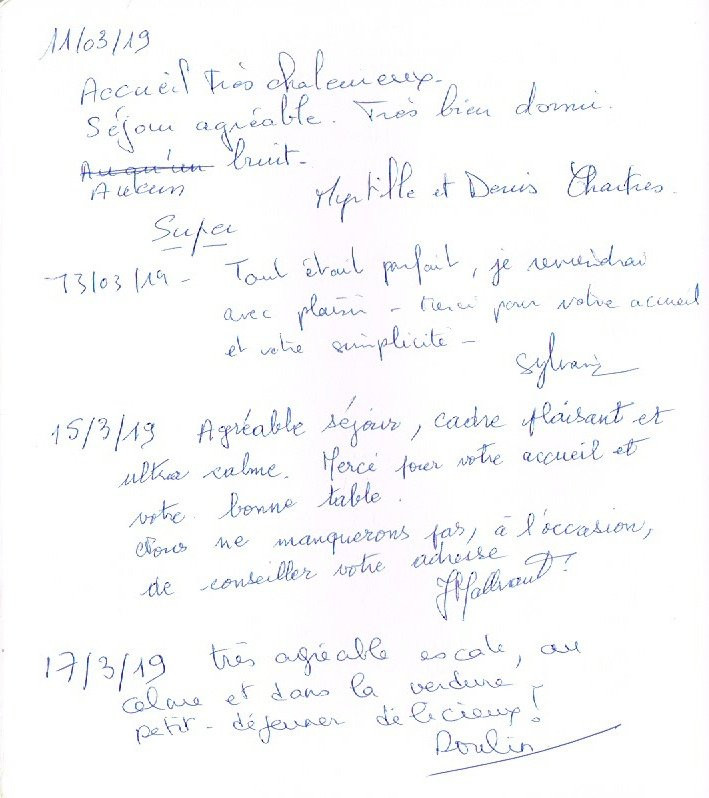 11/03/19
Accueil très chaleureux.
Séjour agréable. Très bien dormi.
Auqu'un bruit.
Aucun
Myrtille et Denis Chartres.
Super
13/03/19 - Tout était parfait, je reviendrai
avec plaisir - merci pour votre accueil
et votre simplicité -
Sylvain
15/3/19 Agréable séjour, cadre plaisant et
ultra calme. Merci pour votre accueil et
votre bonne table.
Nous ne manquerons pas, à l'occasion,
de conseiller votre adresse
17/3/19 très agréable escale, au
calme et dans la verdure -
petit-déjeuner délicieux!